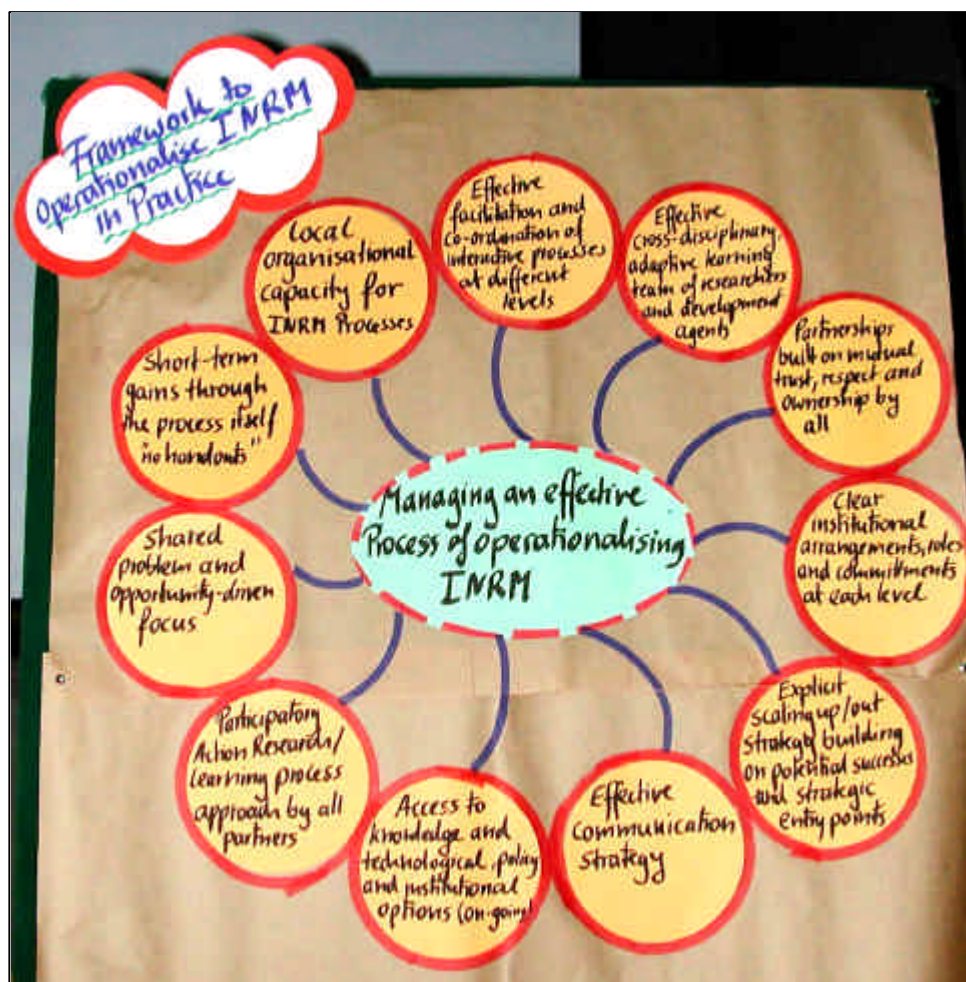 Framework to
operationalise INRM
in Practice
Effective
facilitation and
co-ordination of
interactive processes
at different
levels
Effective
cross-disciplinary,
adaptive learning
team of researchers
and development
agents
Partnerships
built on mutual
trust, respect and
ownership by
all
Clear
institutional
arrangements, roles
and commitments
at each level
Explicit
scaling up/out
strategy building
on potential successes
and strategic
entry points
Effective
communication
strategy
Access to
knowledge and
technological, policy
and institutional
options (on-going)
Participatory
Action Research/
Learning process
approach by all
partners
Shared
problem and
opportunity-driven
focus
Short-term
gains through
the process itself
"no handouts"
Local
organisational
capacity for
INRM Processes
Managing an effective
Process of operationalising
INRM